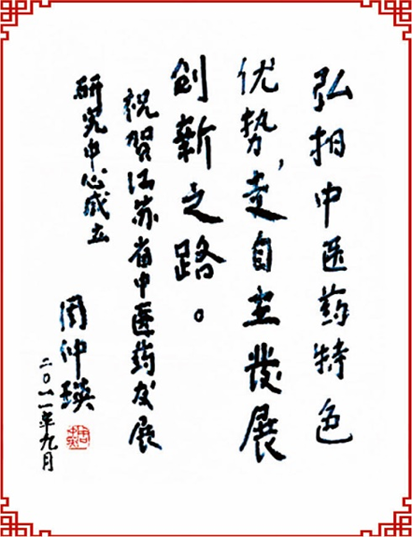 弘扬中医药特色
优势，走自主發展
创新之路。
祝贺江苏省中医药发展
研究中心成立
周仲瑛
二〇一一年九月